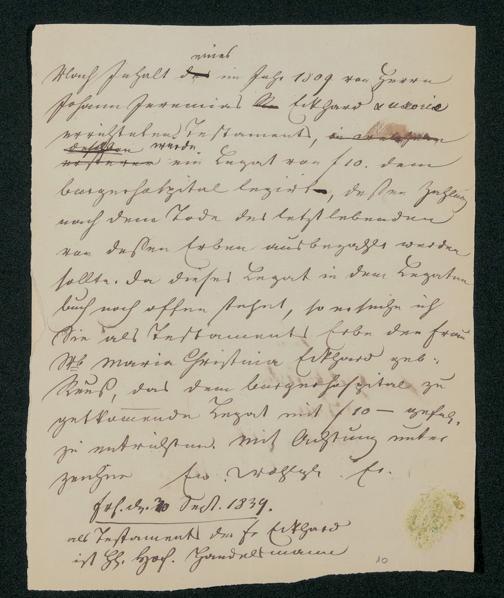 eines
Nach Inhalt im Jahr 1809 von Herrn
Johann Jeremias Eckhard uxoris
errichteten Testaments,
wurde
ein Legat von f 10. dem
burgerhospital legirt, dessen Zahlung
nach dem Tode des letztlebenden
von dessen Erben ausbezahlt werden
sollte. Da dieses Legat in dem Legaten
buch noch offen stehet, so ersuche ich
Sie als Testaments Erbe der Frau
Maria Christina Eckhard geb:
das dem burgerhospital zu
Legat mit f 10 — gefäl.
zu entrichten. Mit Achtung unter
zeichne Ew. Wohlgb.
Sept. 1839.
als Testaments der Fr Eckhard
ist Handelsmann
10